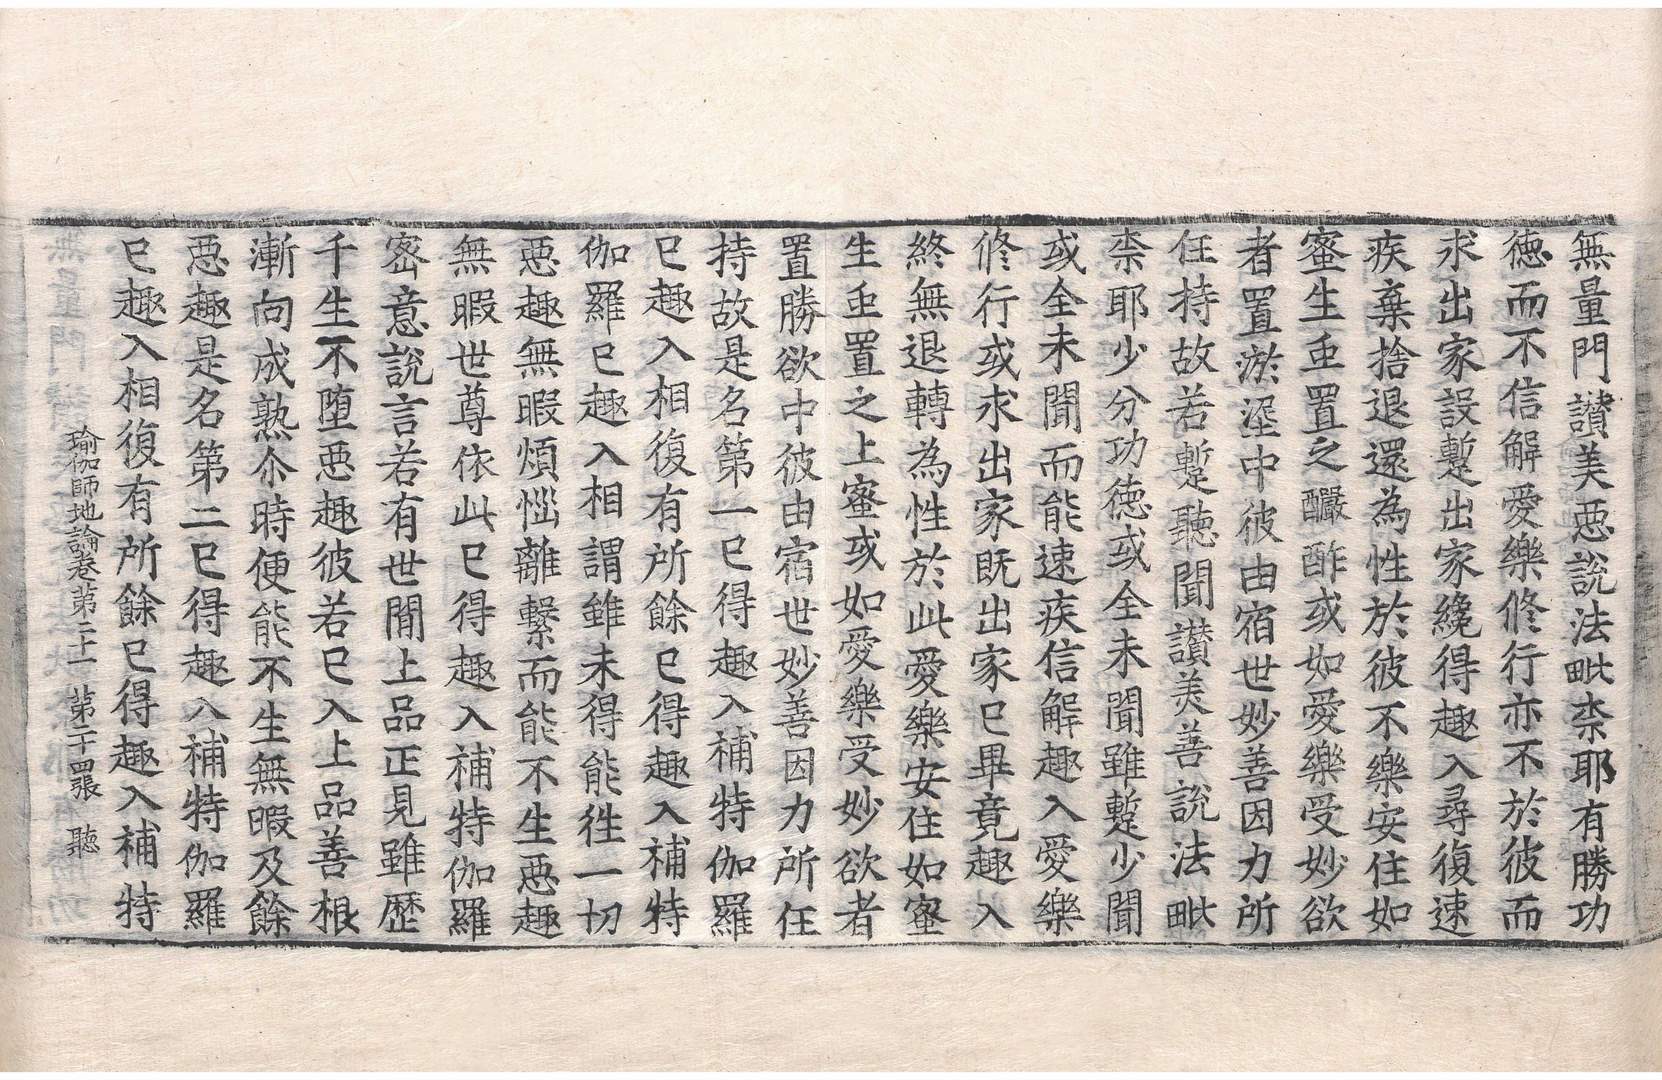 無量門讃美惡說法毗柰耶有勝功
德而不信解愛樂脩行亦不於彼而
求出家設蹔出家纔得趣入尋復速
疾棄捨退還為性於彼不樂安住如
蜜生䖝置之釅酢或如愛樂受妙欲
者置淤埿中彼由宿世妙善因力所
任持故若蹔聽聞讃美善說法毗
柰耶少分功德或全未聞雖蹔少聞
或全未聞而能速疾信解趣入愛樂
脩行或求出家既出家已畢竟趣入
終無退轉為性於此愛樂安住如蜜
生䖝置之上蜜或如愛樂受妙欲者
置勝欲中彼由宿世妙善因力所任
持故是名第一已得趣入補特伽羅
已趣入相復有所餘已得趣入補特
伽羅已趣入相謂雖未得能徃一切
惡趣無暇煩惱離繫而能不生惡趣
無暇世尊依此已得趣入補特伽羅
密意說言若有世間上品正見雖歷
千生不堕惡趣彼若已入上品善根
漸向成熟尒時便能不生無暇及餘
惡趣是名第二已得趣入補特伽羅
已趣入相復有所餘已得趣入補特
瑜伽師地論卷第二十一 第二十四張 聽